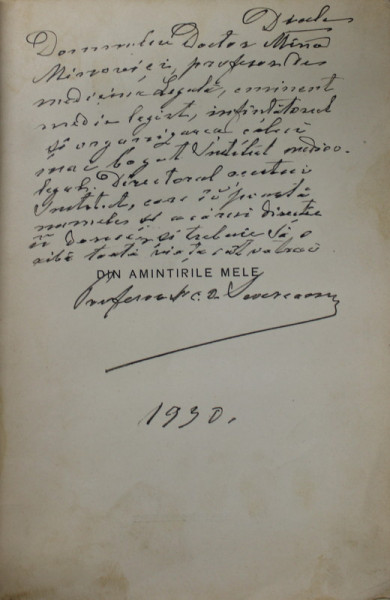 Domnului Doctor Mina
Minovici, profesor de
medicina legală, eminent
medic legist, înfiintătorul
și organizarea celui
mai bogat Institut medico-
legal. Directorul acestui
Institut, care îi poartă
numele și a cărui direcție
și trebuie să o
aibă toată viața
DIN AMINTIRILE MELE
Profesor Dr C. D. Severeanu
1930.